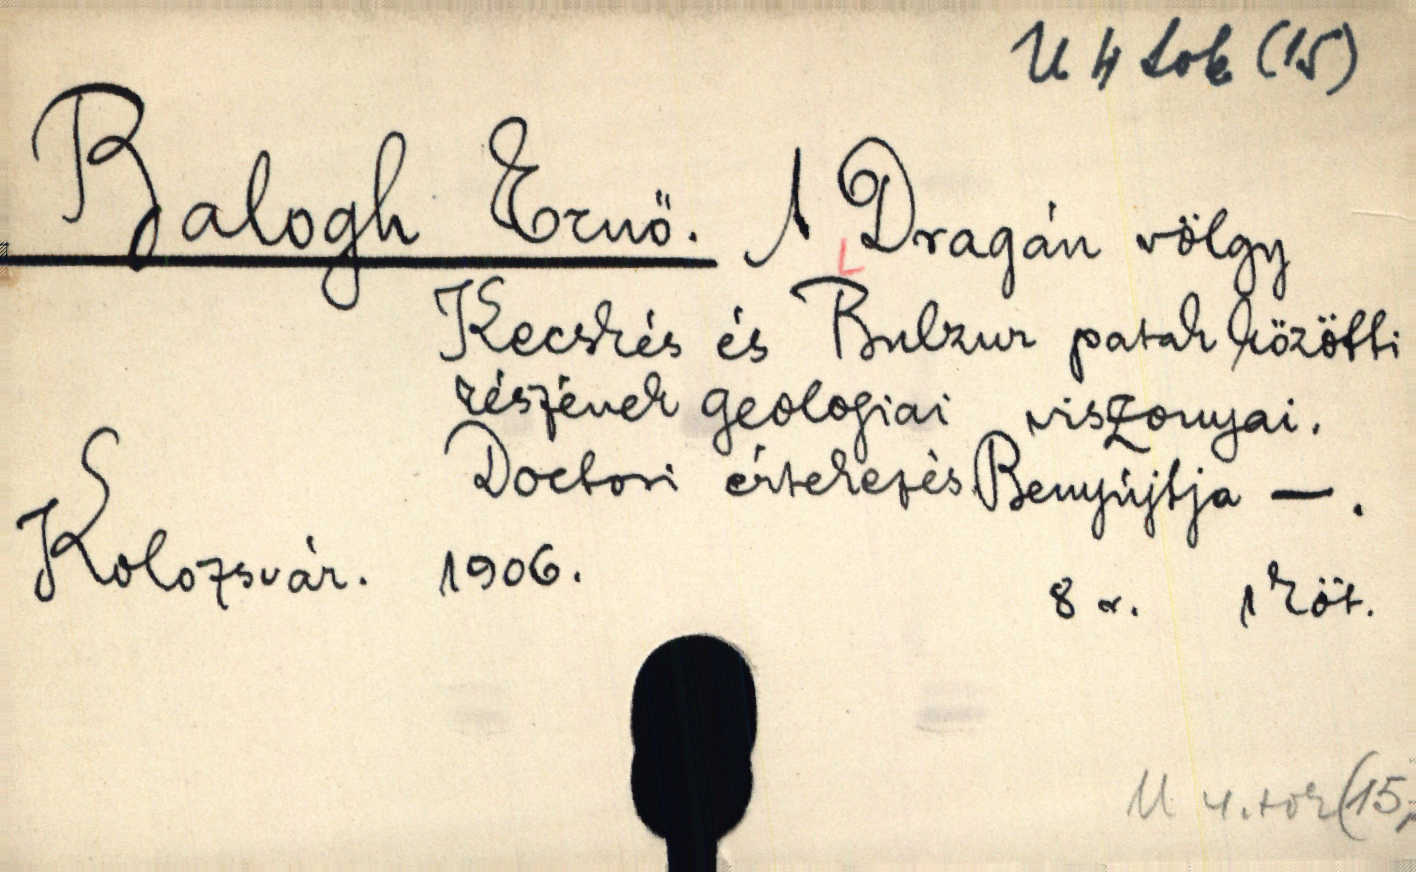 U 4 tok (15)
Balogh Ernő. A Dragán völgy
Kecskés és Bulzur patak közötti
részének geologiai viszonyai.
Doctori értekezés. Benyújtja —.
Kolozsvár. 1906.
8 r. 1 köt.
U 4. tok (15,